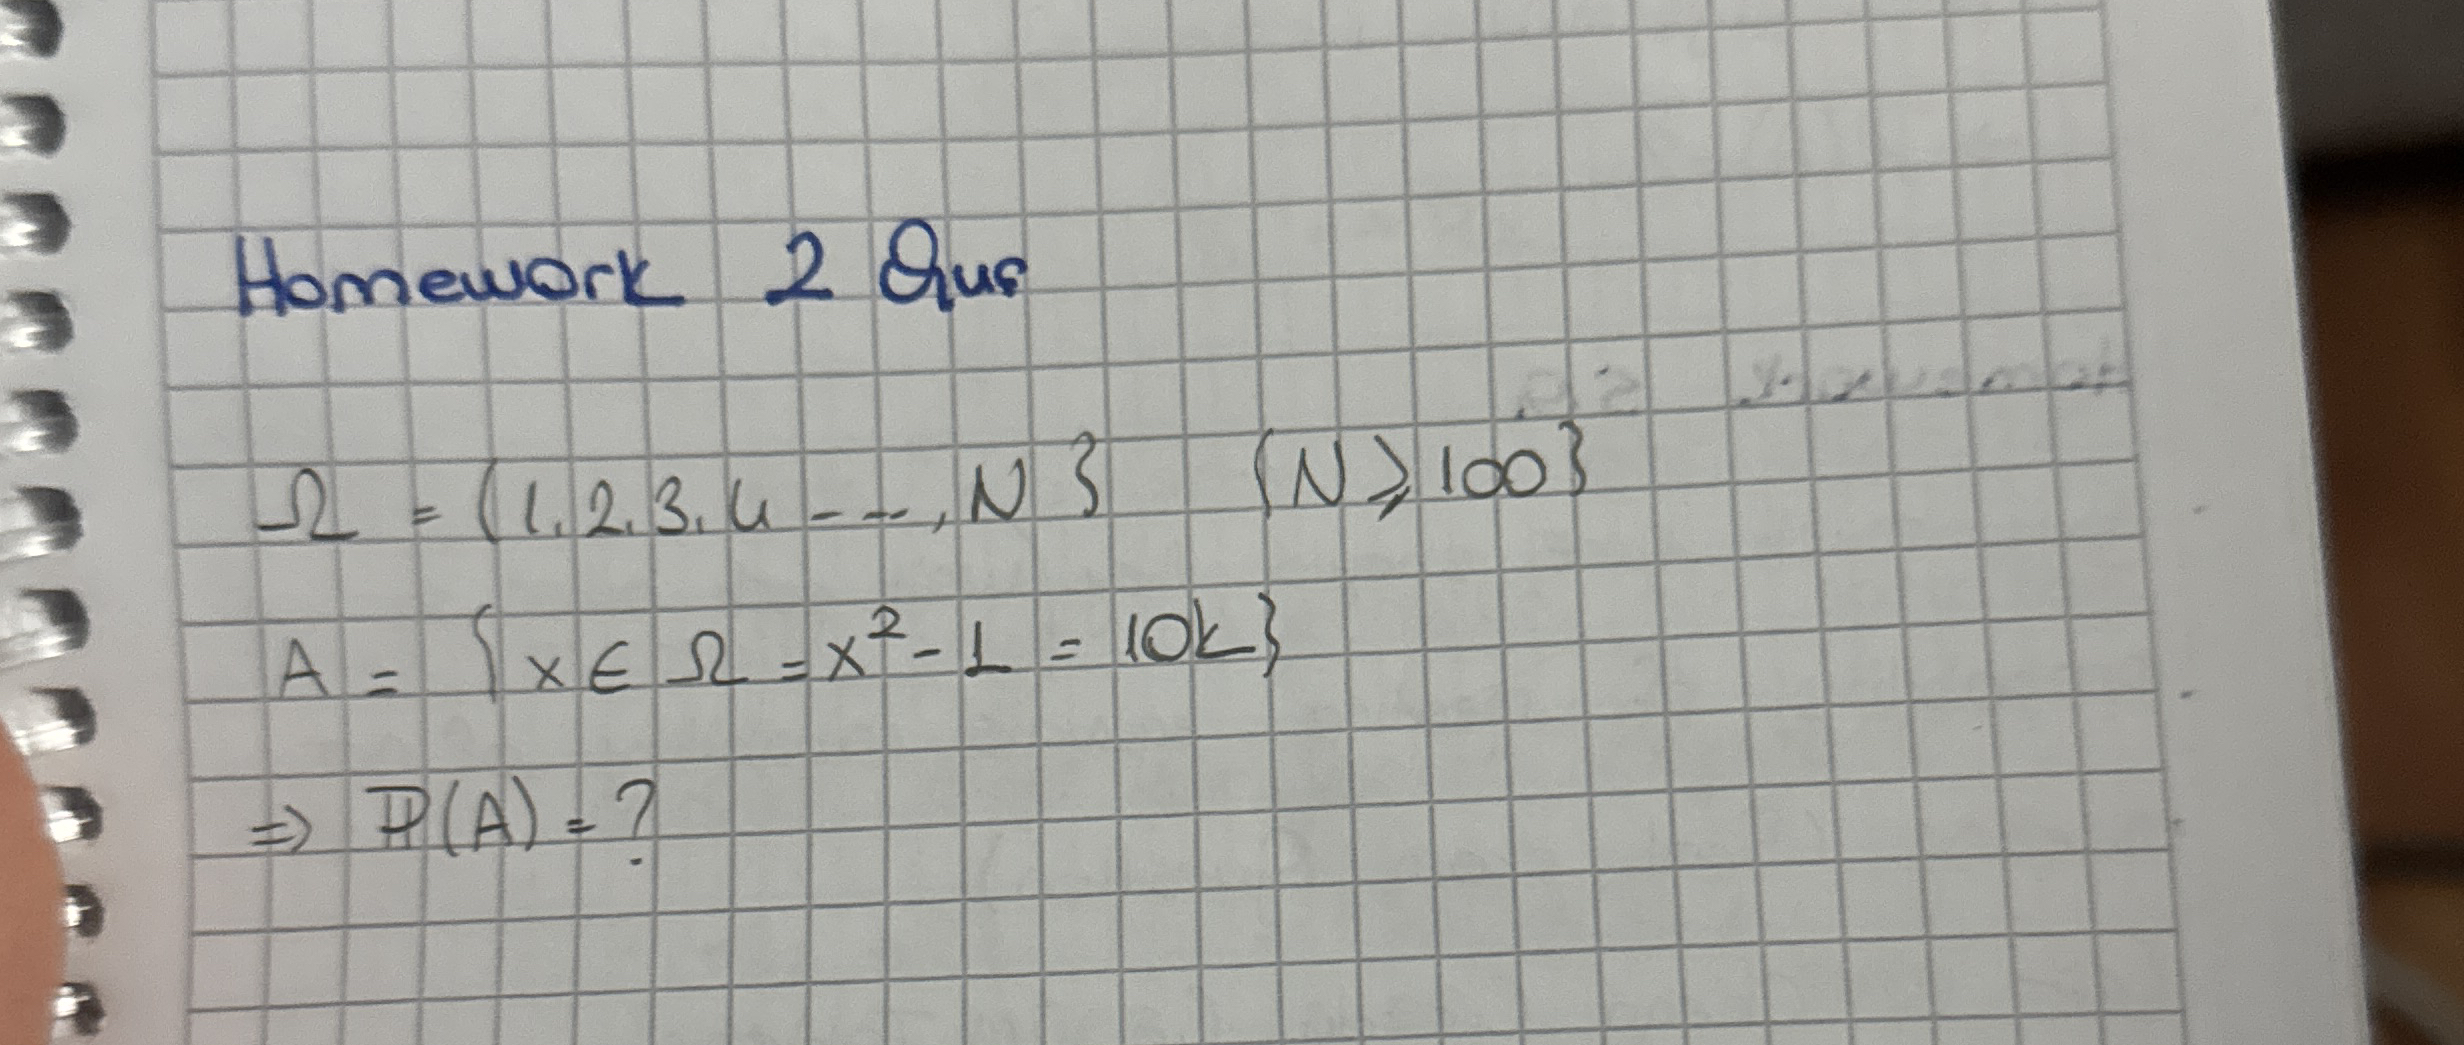 Homework 2 Que
Ω = {1, 2, 3, 4 ---, N} {N ≥ 100}
A = {x ∈ Ω = x² - 1 = 10k}
⇒ ℙ(A) = ?